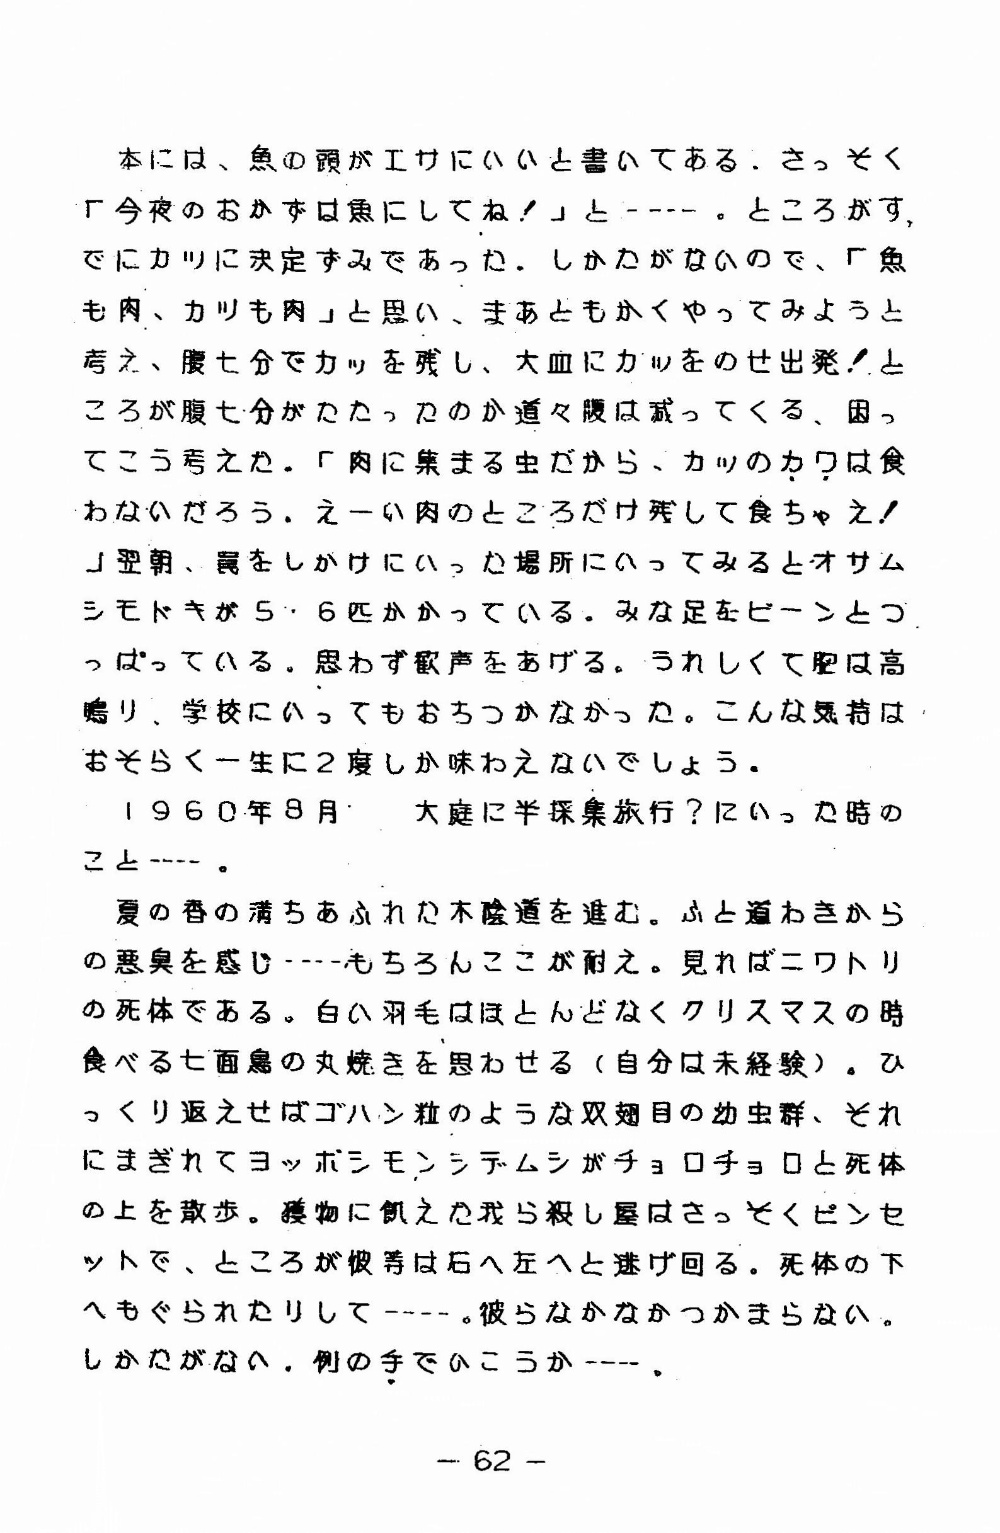 本には、魚の頭がエサにいいと書いてある．さっそく
「今夜のおかずは魚にしてね！」と----。ところがす
でにカツに決定ずみであった．しかたがないので、「魚
も肉、カツも肉」と思い、まあともかくやってみようと
考え、腹七分でカツを残し、大皿にカツをのせ出発！と
ころが腹七分がたたったのか道々腹は減ってくる、困っ
てこう考えた．「肉に集まる虫だから、カツのカワは食
わないだろう．えーい肉のところだけ残して食ちゃえ！
」翌朝、罠をしかけにいった場所にいってみるとオサム
シモドキが５・６匹かかっている。みな足をピーンとつ
っぱっている。思わず歓声をあげる。うれしくて胸は高
鳴り、学校にいってもおちつかなかった。こんな気持は
おそらく一生に２度しか味わえないでしょう．
１９６０年８月　大庭に半採集旅行？にいった時の
こと----。
夏の香の満ちあふれた木陰道を進む。ふと道わきから
の悪臭を感じ----もちろんここが耐え。見ればニワトリ
の死体である。白い羽毛はほとんどなくクリスマスの時
食べる七面鳥の丸焼きを思わせる（自分は未経験）。ひ
っくり返えせばゴハン粒のような双翅目の幼虫群、それ
にまぎれてヨッボシモンシデムシがチョロチョロと死体
の上を散歩。獲物に飢えた我ら殺し屋はさっそくピンセ
ットで、ところが彼等は右へ左へと逃げ回る。死体の下
へもぐられたりして----。彼らなかなかつかまらない。
しかたがない．例の手でいこうか----．
— 62 —